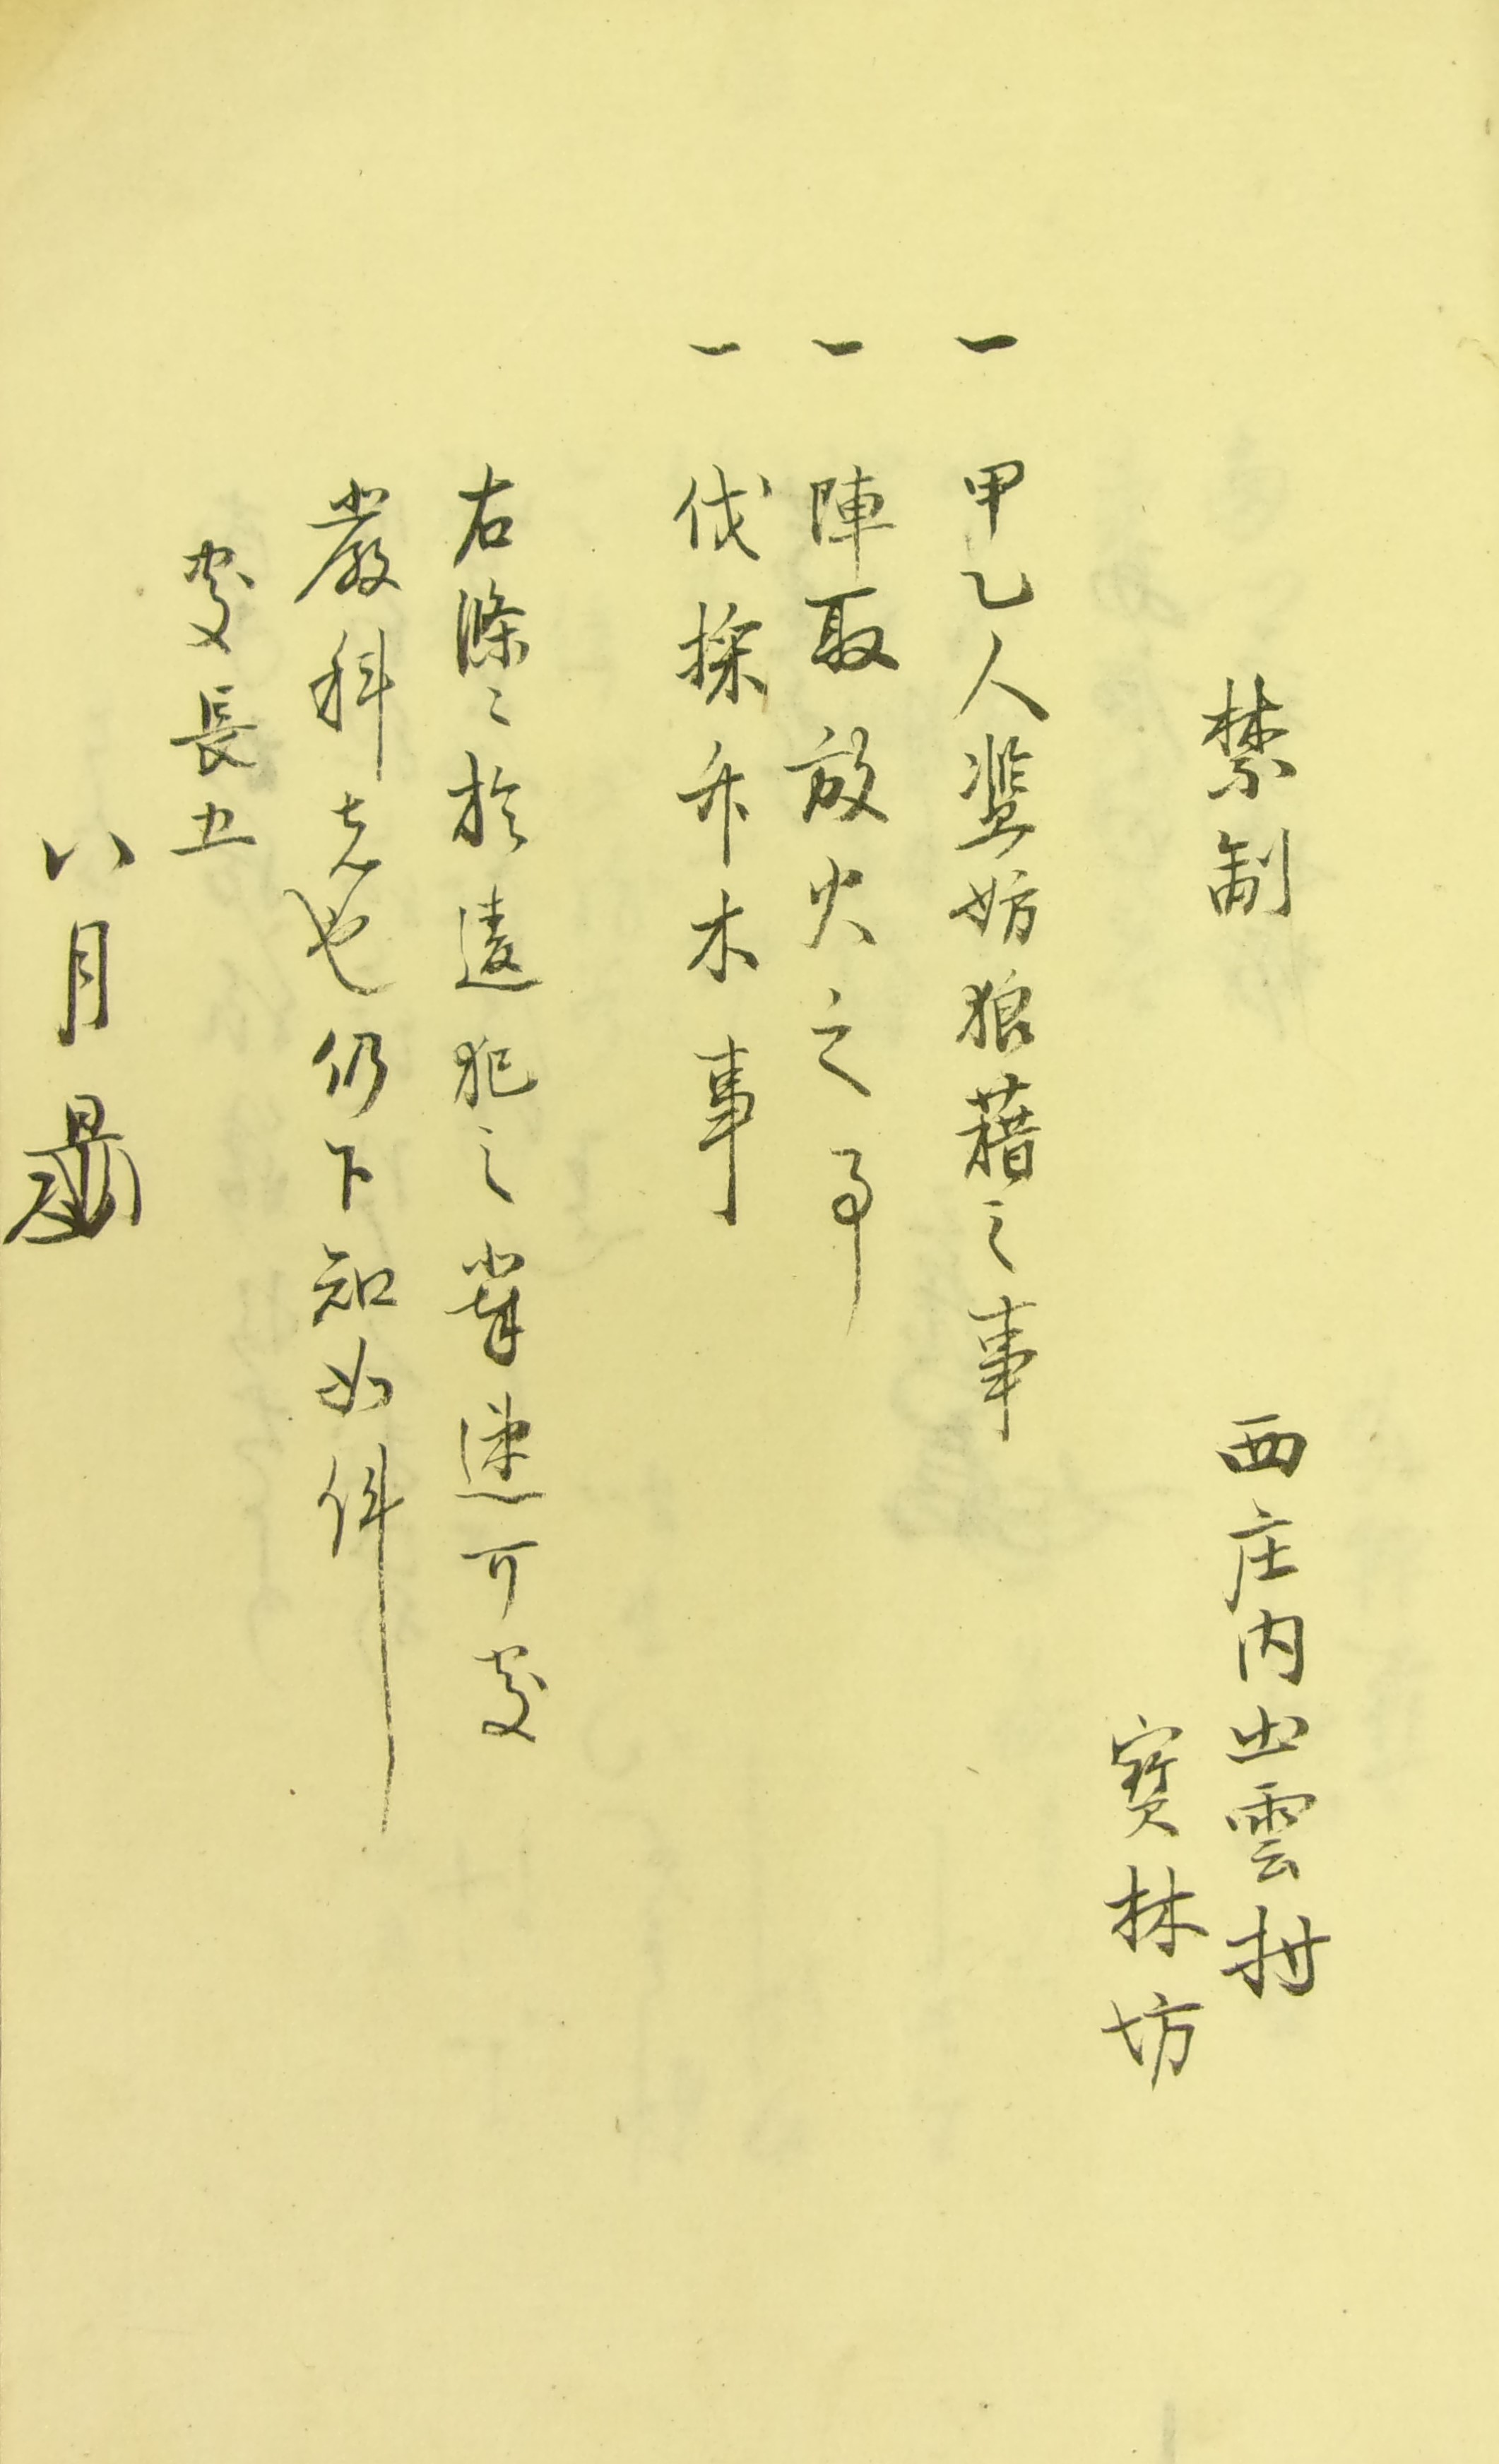 禁制　西庄内出雲村
寳林坊
一 甲乙人濫妨狼藉之事
一 陣取放火之事
一 伐採竹木事
右條々於違犯之輩速可處
嚴科者也仍下知如件
慶長五
八月日